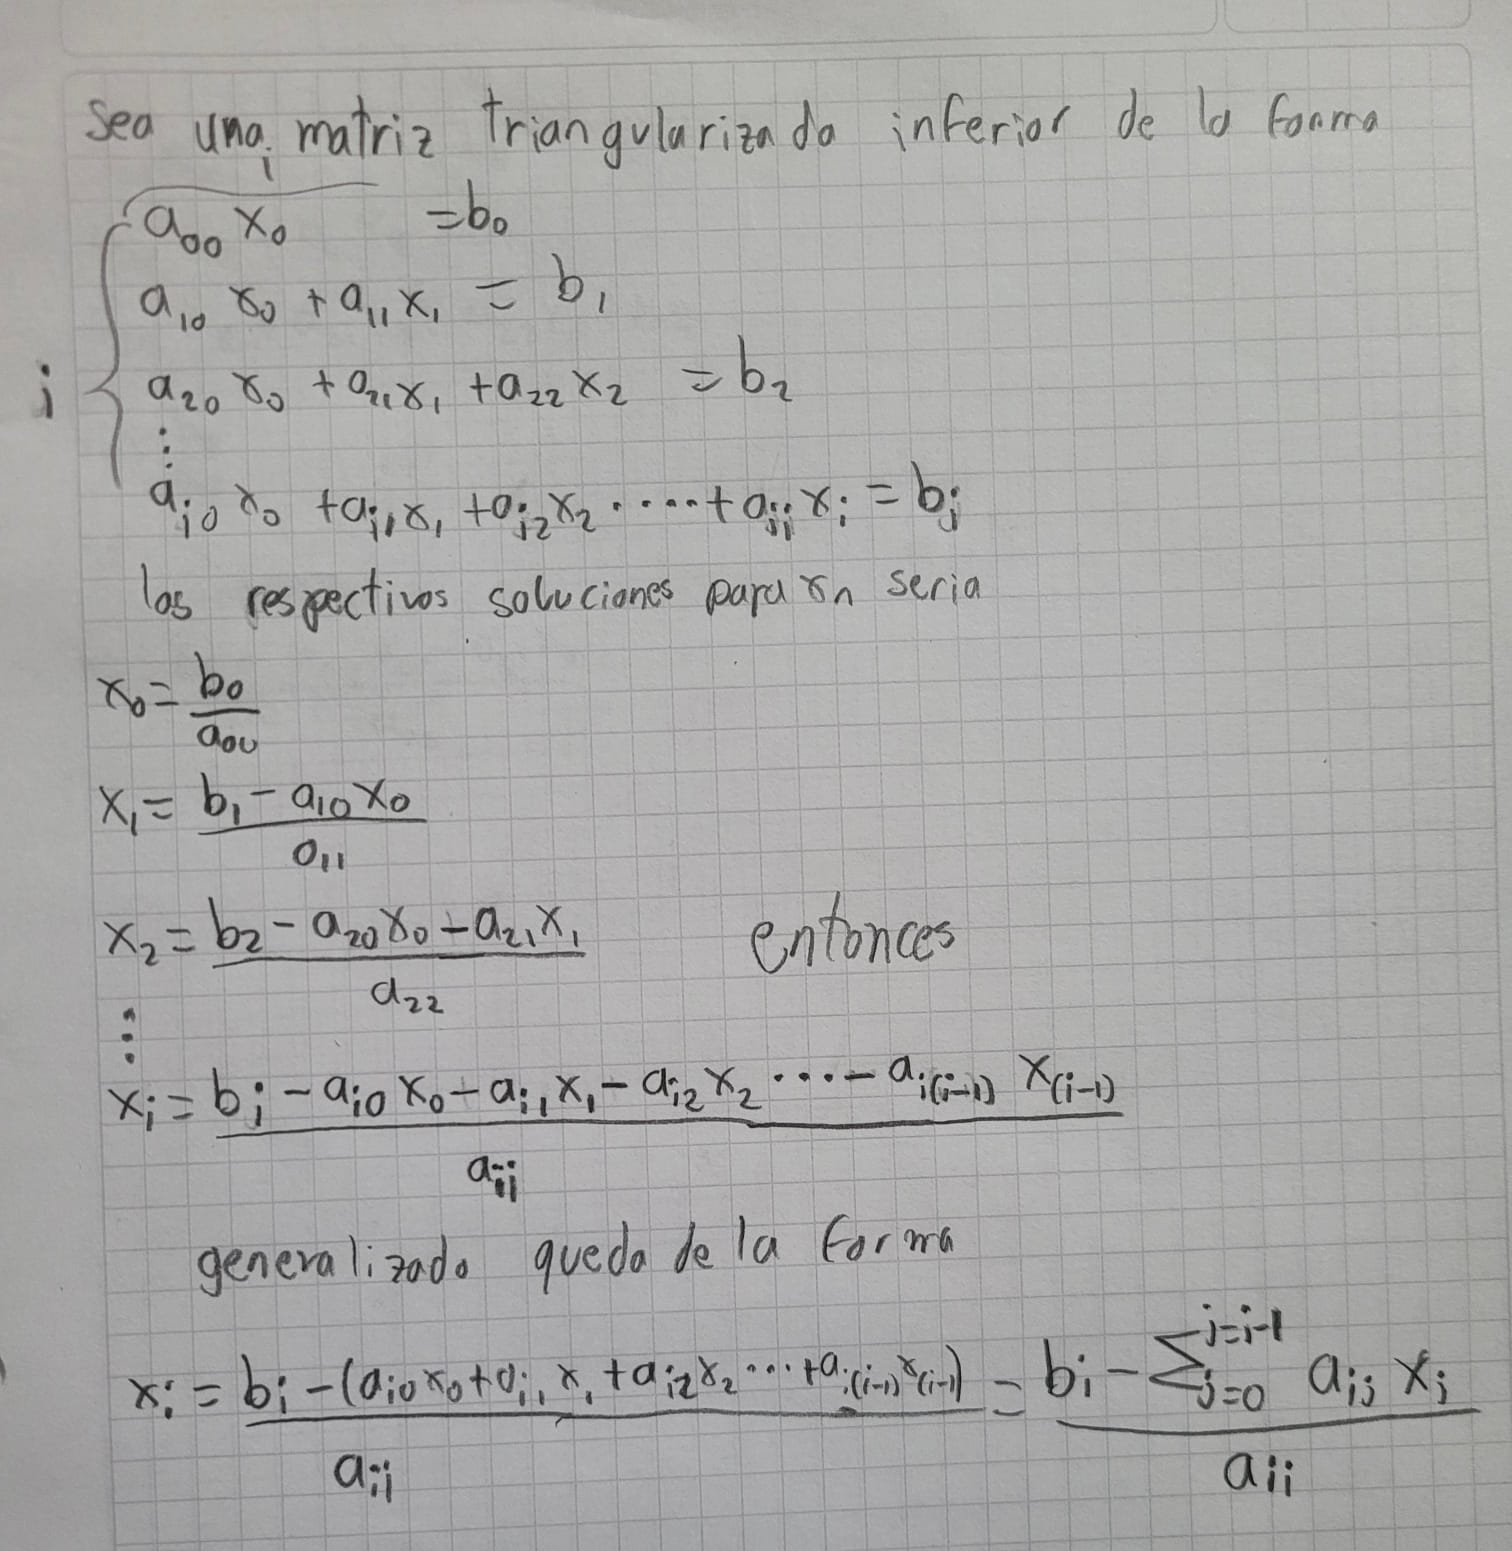 Sea una matriz triangularizada inferior de la forma
i
a₀₀ x₀ = b₀
a₁₀ x₀ + a₁₁ x₁ = b₁
i
a₂₀ x₀ + a₂₁ x₁ + a₂₂ x₂ = b₂
⋮
aᵢ₀ x₀ + aᵢ₁ x₁ + aᵢ₂ x₂ ..... + aᵢᵢ xᵢ = bᵢ
las respectivas soluciones para xn seria
x₀ = b₀ / a₀₀
x₁ = (b₁ - a₁₀ x₀) / a₁₁
x₂ = (b₂ - a₂₀ x₀ - a₂₁ x₁) / a₂₂ entonces
⋮
xᵢ = (bᵢ - aᵢ₀ x₀ - aᵢ₁ x₁ - aᵢ₂ x₂ .... - aᵢ(ᵢ₋₁) x(ᵢ₋₁)) / aᵢᵢ
generalizado queda de la forma
xᵢ = (bᵢ - (aᵢ₀ x₀ + aᵢ₁ x₁ + aᵢ₂ x₂ ... + aᵢ(ᵢ₋₁) x(ᵢ₋₁))) / aᵢᵢ = (bᵢ - Σ_{j=0}^{j=i-1} aᵢⱼ xⱼ) / aᵢᵢ